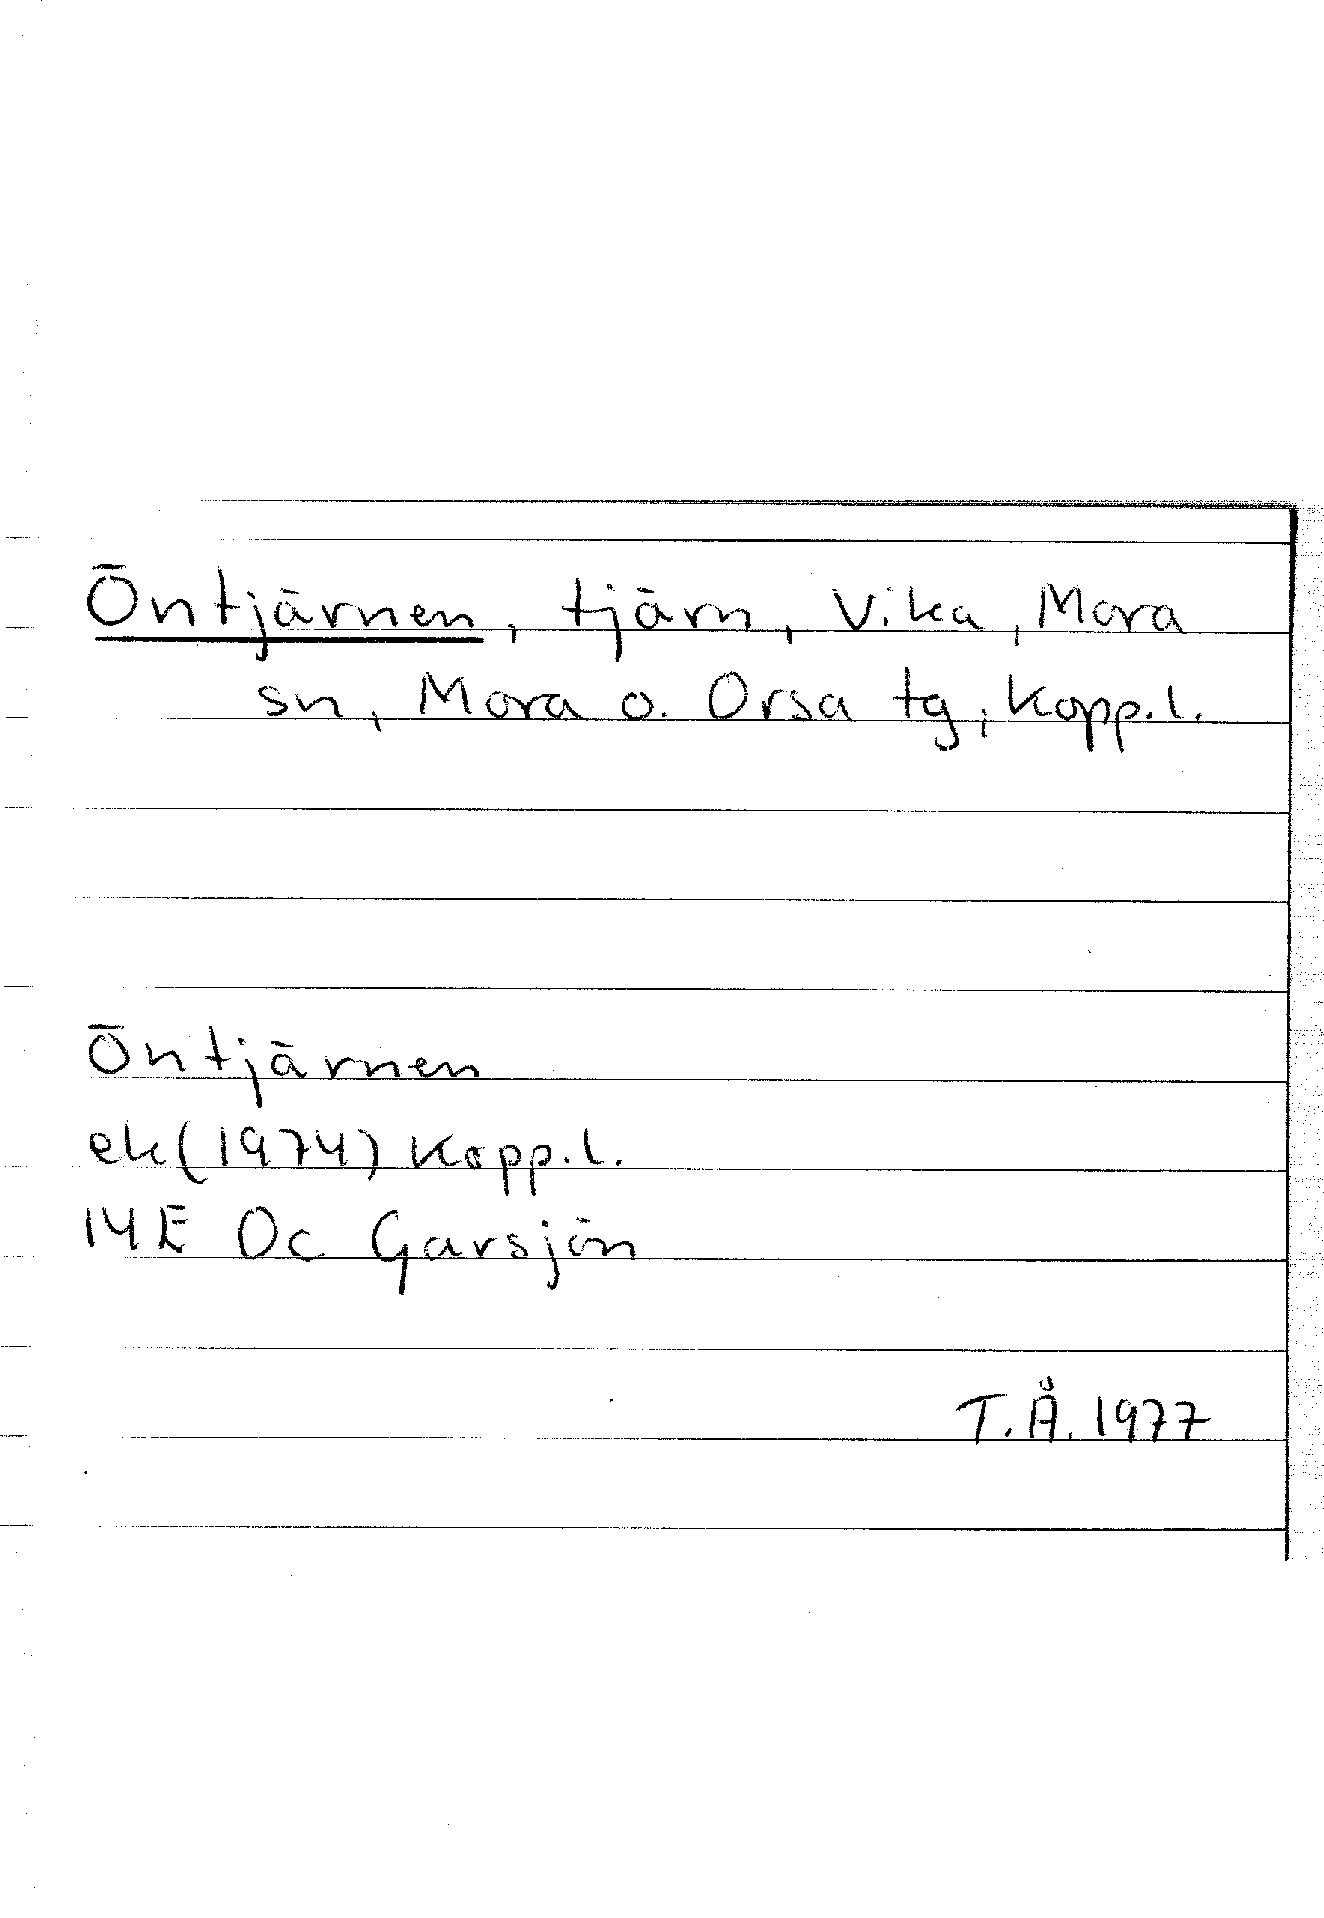 Öntjärnen, tjärn, Vika, Mora
sn, Mora o. Orsa tg, Kopp.l.
Öntjärnen
ek(1974) Kopp.l.
14E 0c Garsjön
T.Å. 1977